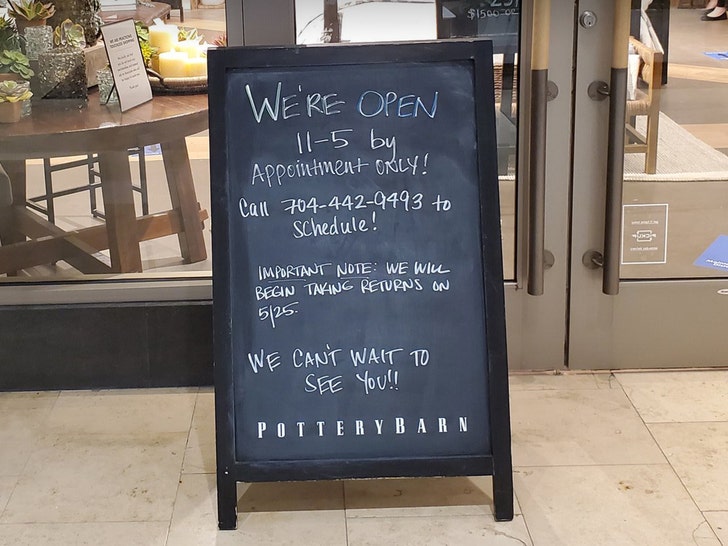 $1500 OR
WE'RE OPEN
11-5 by
APPOintment ONLY!
Call 704-442-9493 to
Schedule!
IMPORTANT NOTE: WE WILL
BEGIN TAKING RETURNS ON
5/25.
WE CAN'T WAIT TO
SEE YOU!!
POTTERYBARN